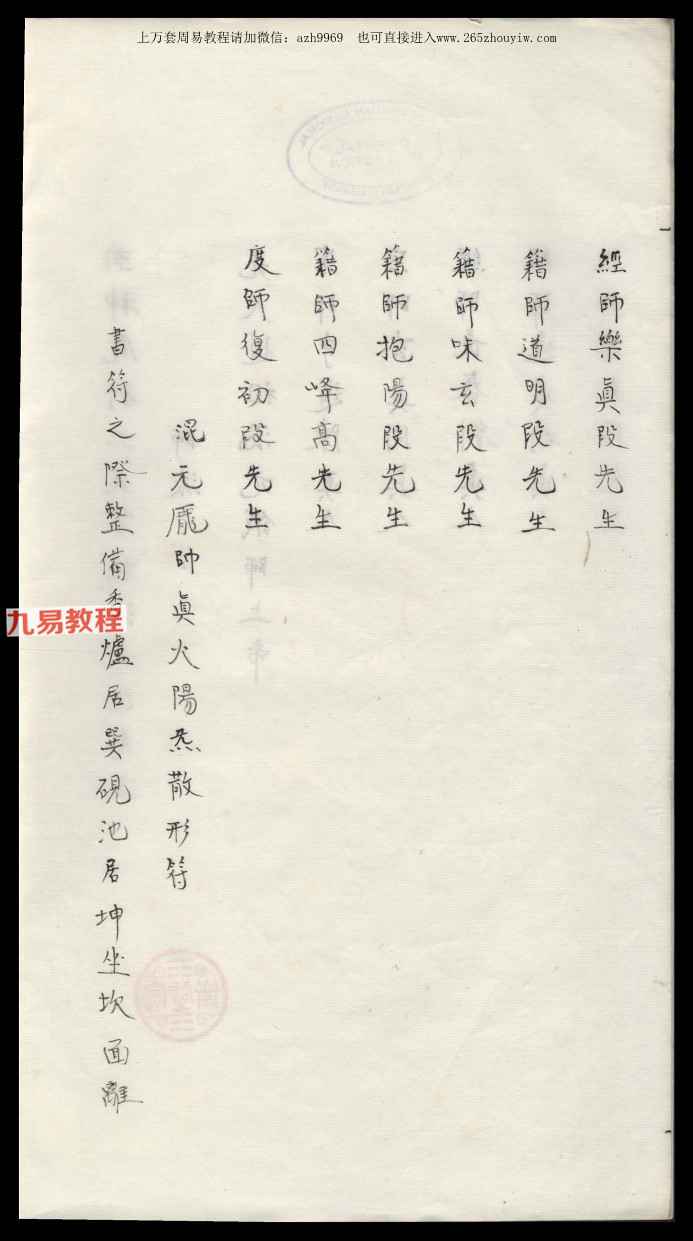 上万套周易教程请加微信：azh9969　也可直接进入www.265zhouyiw.com
經師樂眞段先生
籍師道明段先生
籍師味玄段先生
籍師抱陽段先生
籍師四峰高先生
度師復初段先生
混元龐帥眞火陽炁散形符
書符之際整備香爐居巽硯池居坤坐坎面離
九易教程